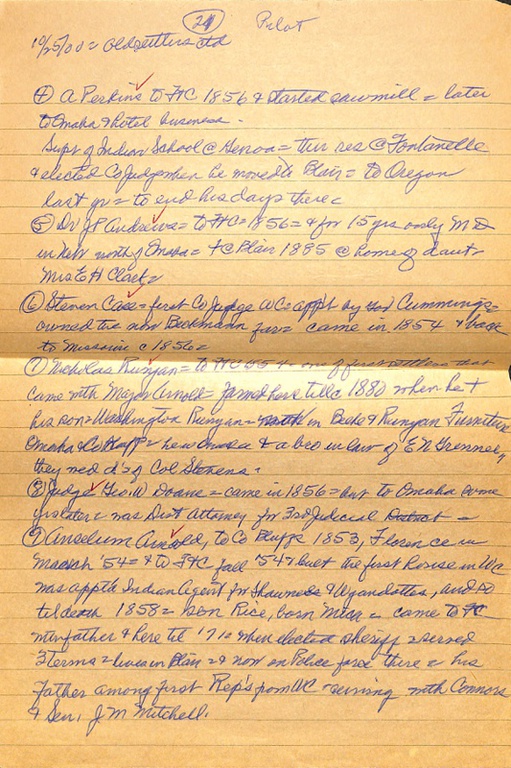 24 Pilot
10/25/00 = Oldsettlers ctd
④ A Perkins to FtC 1856 & started sawmill = later
to Omaha & hotel business.
Supt of Indian School @ Genoa = thr res @ Fontanelle
& elected Co Judge when he moved to Blair = to Oregon
last yr = to end his days there =
⑤ Dr JP Andrews = to FtC = 1856 = & for 15 yrs only M D
in Neb north of Omaha = tc Blair 1885 @ home of daut
Mrs E H Clark =
⑥ Steven Case = first Co Judge WC = app't by Gov Cummings =
owned the now Beckmann farm = came in 1854 & back
to Missouri c 1856 =
⑦ Nicholas Runyan = to FtC '54 = one of first settlers that
came with Major Arnold = farmed here till c 1880 when he &
his son = Washington Runyan = in Beebe & Runyan Furniture
Omaha & Co = & a bro in law of E N Grennell,
they med d's of Col Stevens.
⑧ Judge Geo W Doane = came in 1856 = but to Omaha some
yrs later = was Dist Attorney for 3rd Judicial District =
⑨ Anselum Arnold, to Co Bluffs 1853, Florence in
March '54 = & to FtC fall '54 & built the first house in WC
was apptd Indian Agent for Shawnees & Wyandottes, and so
til death 1858 = son Rice, born Mich = came to FtC
with father & here til '71 = when elected sheriff & served
3 terms = lives in Blair = & now on Police force there = his
Father among first Rep's from WC - serving with Connors
& Sen. J M Mitchell.